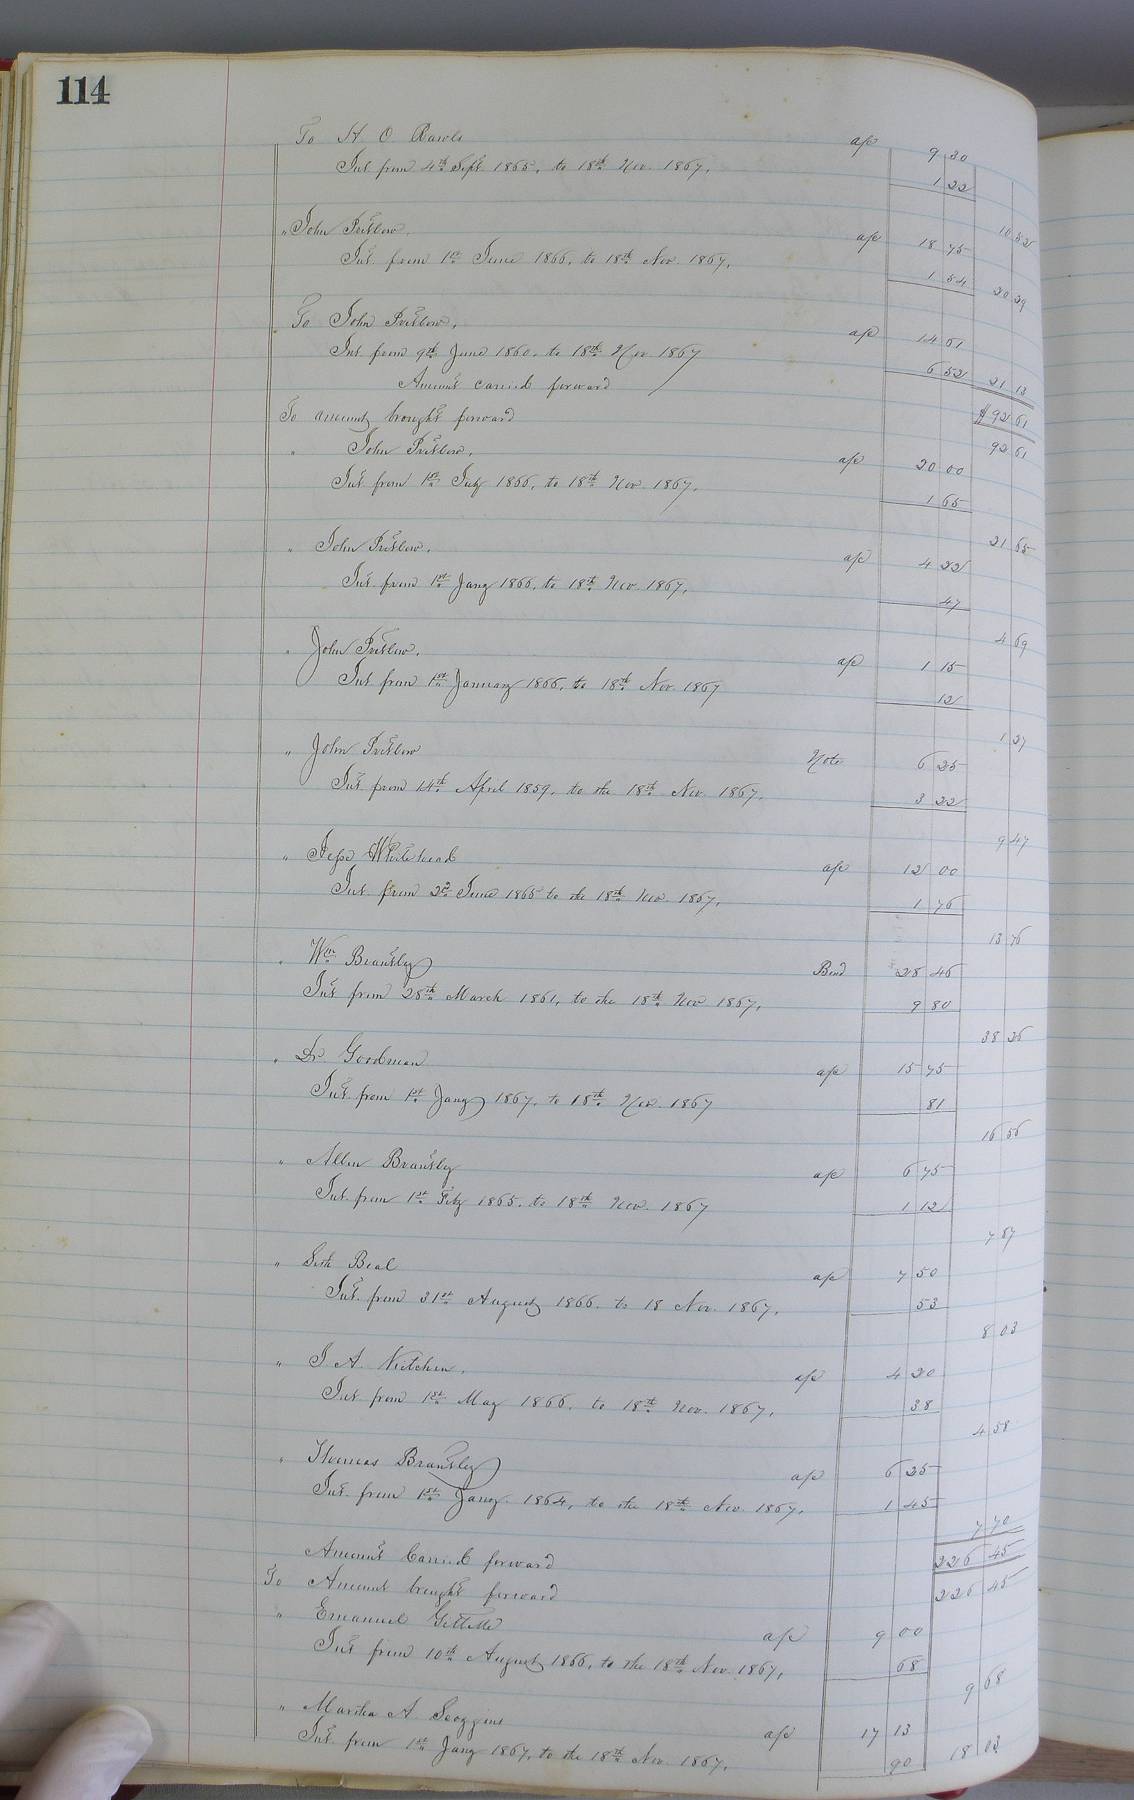 114
To H O Rawls a/c 9 30
Int from 4th Sept 1865, to 18th Nov. 1867, 1 22
10 52
" John Pretlow. a/c 18 75
Int. from 1st June 1866, to 18th Nov. 1867, 1 54
20 29
To John Pretlow, a/c 14 61
Int from 9th June 1860, to 18th Nov 1867 6 52
21 13
Amount carried forward $92 61
To amount brought forward 92 61
" John Pretlow, a/c 20 00
Int from 1st July 1866, to 18th Nov. 1867, 1 65
21 65
" John Pretlow. a/c 4 22
Int. from 1st Jany 1866, to 18th Nov. 1867, 47
4 69
" John Pretlow. a/c 1 15
Int from 1st January 1866, to 18th Nov. 1867 12
1 27
" John Pretlow Note 6 25
Int from 14th April 1859, to the 18th Nov. 1867, 3 22
9 47
" Jesse Whitehead a/c 12 00
Int. from 22 June 1865 to the 18th Nov. 1867, 1 76
13 76
" Wm Brantley Bond 28 46
Int from 28th March 1861, to the 18th Nov 1867, 9 80
38 26
" Dr. Goodman a/c 15 75
Int from 1st Jany 1867, to 18th Nov. 1867 81
16 56
" Allen Brantley a/c 6 75
Int. from 1st Feby 1865, to 18th Nov. 1867 1 12
7 87
" Seth Beal a/c 7 50
Int. from 31st August 1866. to 18 Nov. 1867, 53
8 03
" J. A. a/c 4 20
Int from 1st May 1866, to 18th Nov. 1867, 38
4 58
" Thomas Brantley a/c 6 25
Int. from 1st Jany. 1864, to the 18th Nov. 1867, 1 45
7 70
Amount Carried forward 226 45
To Amount brought forward 226 45
" Emanuel a/c 9 00
Int from 10th August 1866, to the 18th Nov. 1867, 68
9 68
" Martha A Scoggins a/c 17 13
Int. from 1st Jany 1867, to the 18th Nov. 1867, 90 18 03